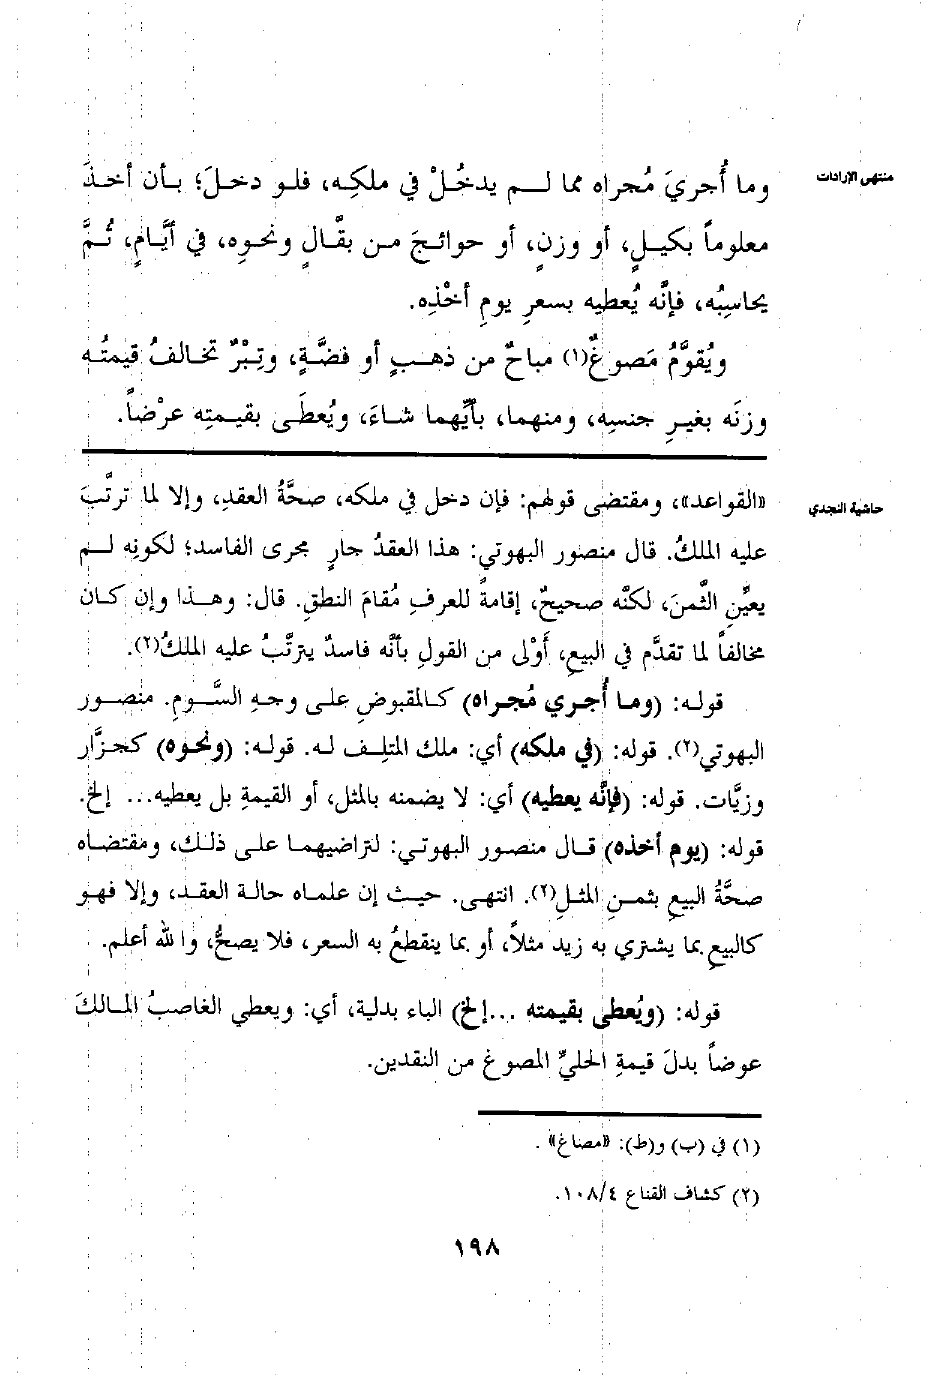 منتهى الإرادات
وما أُجريَ مُجراه مما لـم يدخُلْ في ملكِه، فلو دخلَ؛ بأن أخذَ
معلوماً بكيلٍ، أو وزنٍ، أو حوائجَ من بقَّالٍ ونحوِه، في أيَّامٍ، ثُمَّ
يحاسِبُه، فإنَّه يُعطيه بسعرِ يومِ أخْذِه.
ويُقوَّمُ مَصوغٌ(١) مباحٌ من ذهبٍ أو فضَّةٍ، وتِبْرٌ تخالفُ قيمتُه
وزنَه بغيرِ جنسِه، ومنهما، بأيِّهما شاءَ، ويُعطَى بقيمتِه عرْضاً.
حاشية النجدي
«القواعد»، ومقتضى قولهم: فإن دخل في ملكه، صحَّةُ العقدِ، وإلا لما ترتَّبَ
عليه الملكُ. قال منصور البهوتي: هذا العقدُ جارٍ مجرى الفاسد؛ لكونِه لـم
يعيِّنِ الثَّمنَ، لكنَّه صحيحٌ، إقامةً للعرفِ مُقامَ النطقِ. قال: وهذا وإن كان
مخالفاً لما تقدَّم في البيعِ، أَوْلى من القولِ بأنَّه فاسدٌ يترتَّبُ عليه الملكُ(٢).
قوله: (وما أُجري مُجراه) كالمقبوضِ على وجهِ السَّومِ. منصور
البهوتي(٢). قوله: (في ملكه) أي: ملك المتلِف له. قوله: (ونحوه) كجزَّار
وزيَّات. قوله: (فإنَّه يعطيه) أي: لا يضمنه بالمثل، أو القيمةِ بل يعطيه... إلخ.
قوله: (يوم أخذه) قال منصور البهوتي: لتراضيهما على ذلك، ومقتضاه
صحَّةُ البيعِ بثمنِ المثلِ(٢). انتهى. حيث إن علماه حالة العقد، وإلا فهو
كالبيعِ بما يشتري به زيد مثلاً، أو بما ينقطعُ به السعر، فلا يصحُّ، والله أعلم.
قوله: (ويُعطى بقيمته ...إلخ) الباء بدلية، أي: ويعطي الغاصبُ المالكَ
عوضاً بدلَ قيمةِ الحليِّ المصوغ من النقدين.
(١) في (ب) و(ط): «مصاغ» .
(٢) كشاف القناع ١٠٨/٤.
١٩٨